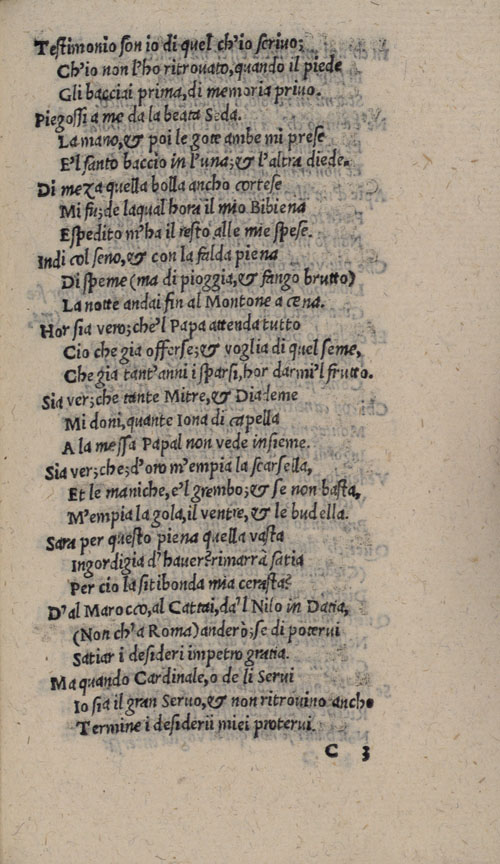 Testimonio son io di quel ch'io scriuo;
Ch'io non l'ho ritrouato, quando il piede
Gli bacciai prima, di memoria priuo.
Piegossi a me da la beata Seda.
La mano, & poi le gote ambe mi prese
E'l santo baccio in l'una; & l'altra diede.
Di meza quella bolla ancho cortese
Mi fu; de laqual hora il mio Bibiena
Espedito m'ha il resto alle mie spese.
Indi col seno, & con la falda piena
Di speme (ma di pioggia, & fango brutto)
La notte andai fin al Montone a cena.
Hor sia vero; che'l Papa attenda tutto
Cio che gia offerse; & voglia di quel seme,
Che gia tant'anni i sparsi, hor darmi'l frutto.
Sia ver; che tante Mitre, & Diademe
Mi doni, quante Iona di capella
A la messa Papal non vede insieme.
Sia ver; che; d'oro m'empia la scarsella,
Et le maniche, e'l grembo; & se non basta,
M'empia la gola, il ventre, & le budella.
Sara per questo piena quella vasta
Ingordigia d'hauer? rimarrà satia
Per cio la sitibonda mia cerasta?
D'al Marocco, al Cattai, da'l Nilo in Datia,
(Non ch'a Roma) anderò; se di poterui
Satiar i desideri impetro gratia.
Ma quando Cardinale, o de li Serui
Io sia il gran Seruo, & non ritrouino ancho
Termine i desiderii miei proterui.
C 3